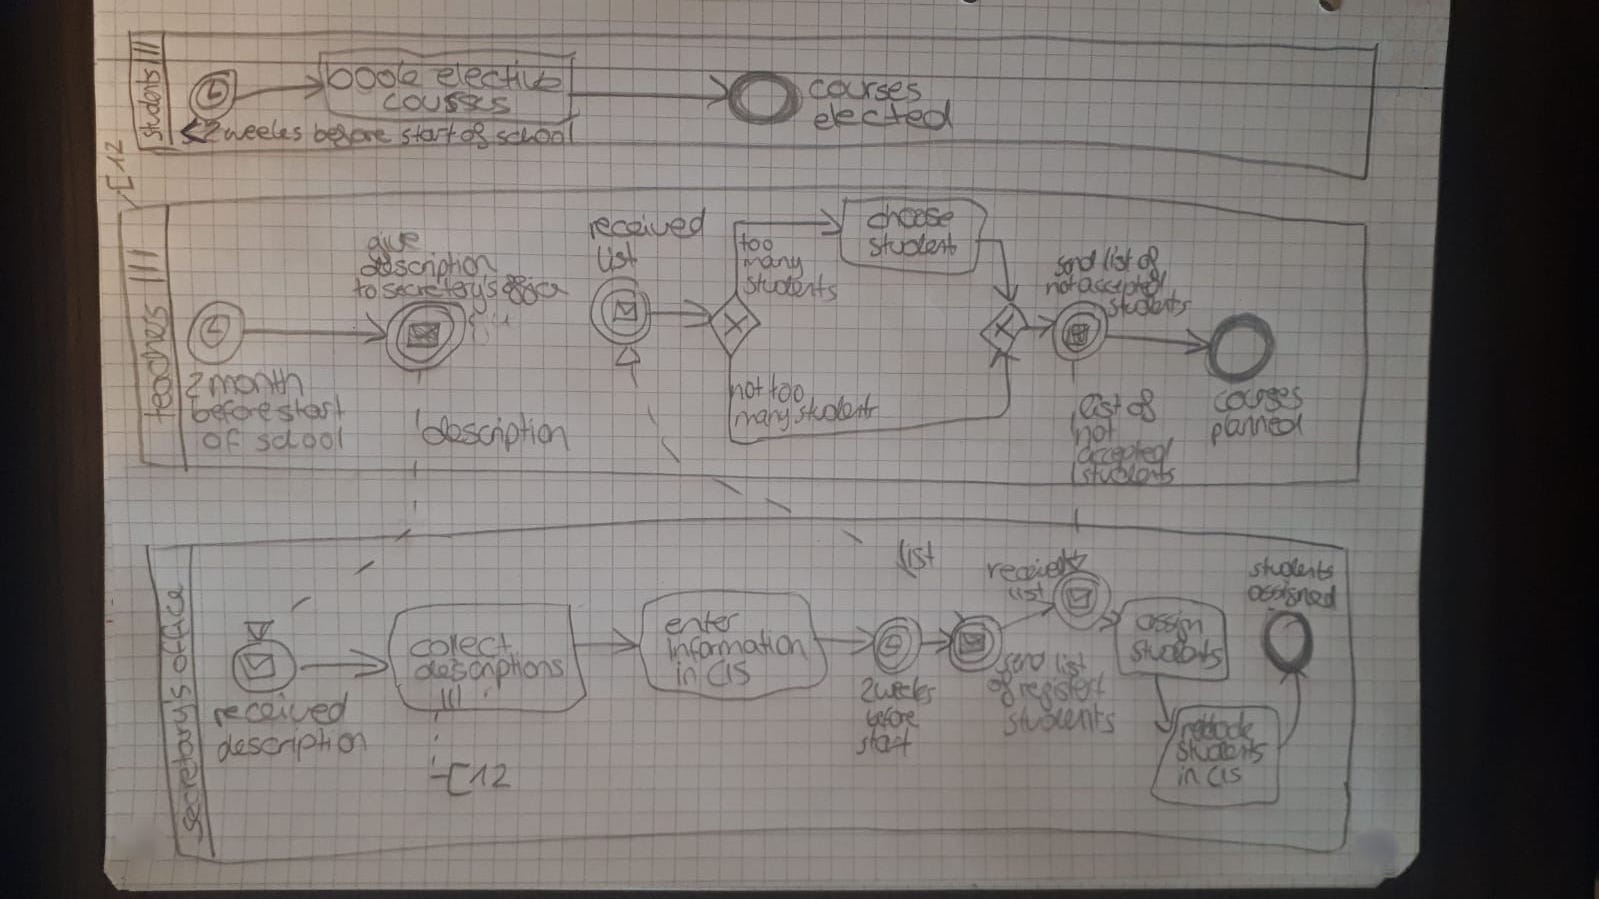 students |||
book elective
courses
<2 weeks before start of school
courses
elected
[12
teachers |||
2 month
before start
of school
give
description
to secretery's office
description
received
list
too
many
students
not too
many students
choose
student
send list of
not accepted
students
list of
not
accepted
students
courses
planned
secretary's office
received
description
collect
descriptions
|||
[12
enter
information
in CIS
2 weeks
before
start
list
send list
of registert
students
received
list
assign
students
students
in CIS
students
assigned